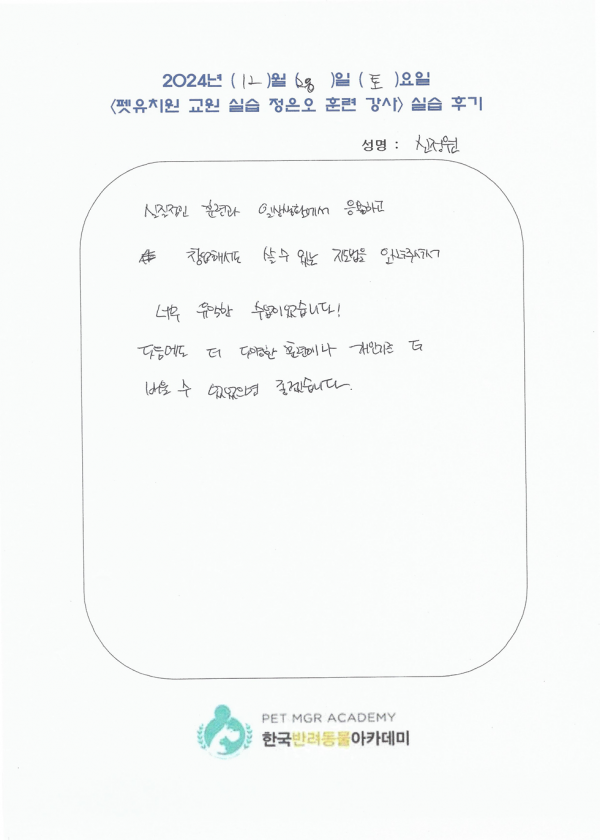 2024년 (12)월 (28)일 (토)요일
<펫유치원 교원 실습 정은오 훈련 강사> 실습 후기
성명 : 신정원
실질적인 훈련과 일상생활에서 응용하고
창업해서도 쓸 수 있는 지도법을 알려주셔서
너무 유익한 수업이었습니다!
다음에도 더 다양한 훈련이나 개인기도 더
배울 수 있었으면 좋겠습니다.
PET MGR ACADEMY
한국반려동물아카데미